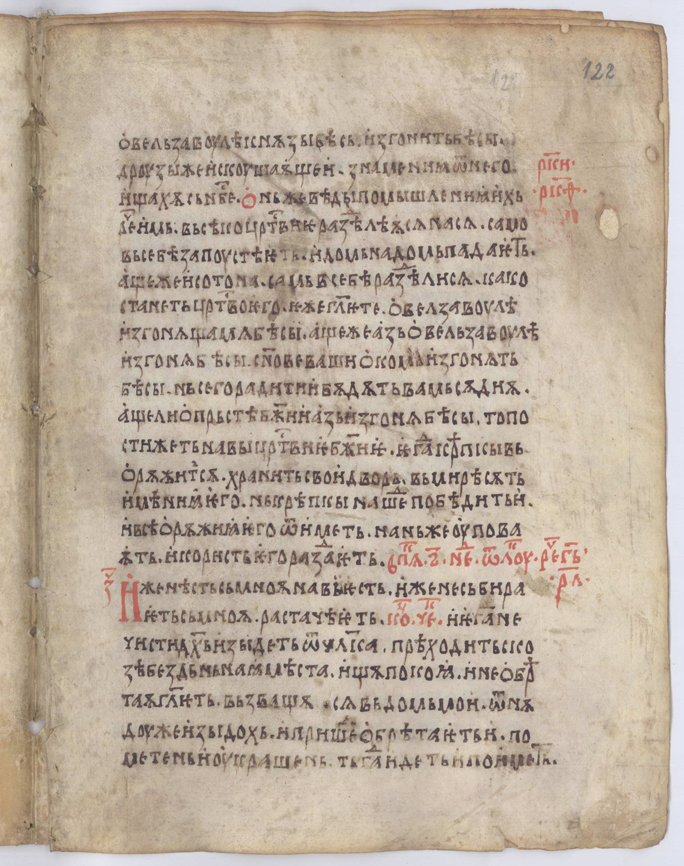 122
ѡвельзавоулѣ кнѧзы бѣсь. изгонить бѣсы.
дроузыже искоушаѧще и. знамени ꙗ ѿ него
ищахѫ сь нб҃се. ѡнь же вѣды помышлениꙗ ихь
рече имь. вьсѣко црⷭ҇твиѥ раздѣлѣѫ сѧ на сѧ. само
вь себѣ запоустѣѥть. и домь на домь падаѥть.
аще же и сотона. самь вь себѣ раздѣли сѧ. како
станеть црⷭ҇тво ѥго. ѥже гл҃ѥте. ѡ вельзавоулѣ
изгонѧща мѧ бѣсы. аще же азь ѡ вельзавоулѣ
изгонѧ бѣсы. сн҃ове ваши ѡ комь изгонѧть
бѣсы. нь сего ради ти и бѫдѫть вамь сѫдиѧ.
аще ли ѡ прьстѣ бж҃и и азь изгонѧ бѣсы. то по
стижеть на вы црⷭ҇твиѥ бж҃иѥ. ѥгда крѣпкы вь
ѡрѫжит сѧ. хранить свои дворь. вь мирѣ сѫть
имѣниꙗ ѥго. не крѣпкы наше побѣдить и.
и всѣ ѡрѫжиꙗ ѥго ѿиметь. на нь же оупова
ѫть. и користь ѥго раздаѥть.
иже нѣсть сь мноѫ на ме ѥсть. и иже не сьбира
ѥть сь мноѫ. растачѣѥть. иѥгда не
чисти дх҃ь изыдеть ѿ чл҃ка. прѣходить ско
зѣ бездьньнаꙗ мѣста. ищѧ покоꙗ. и не обрѣ
таѧ гл҃ѥть. вьзвращѫ сѧ вь домь мои. ѿ нѫ
доу же изыдохь. и пришедь ѡбрѣтаѥть и. по
метень и оукрашень. тьгда идеть и поиметь.